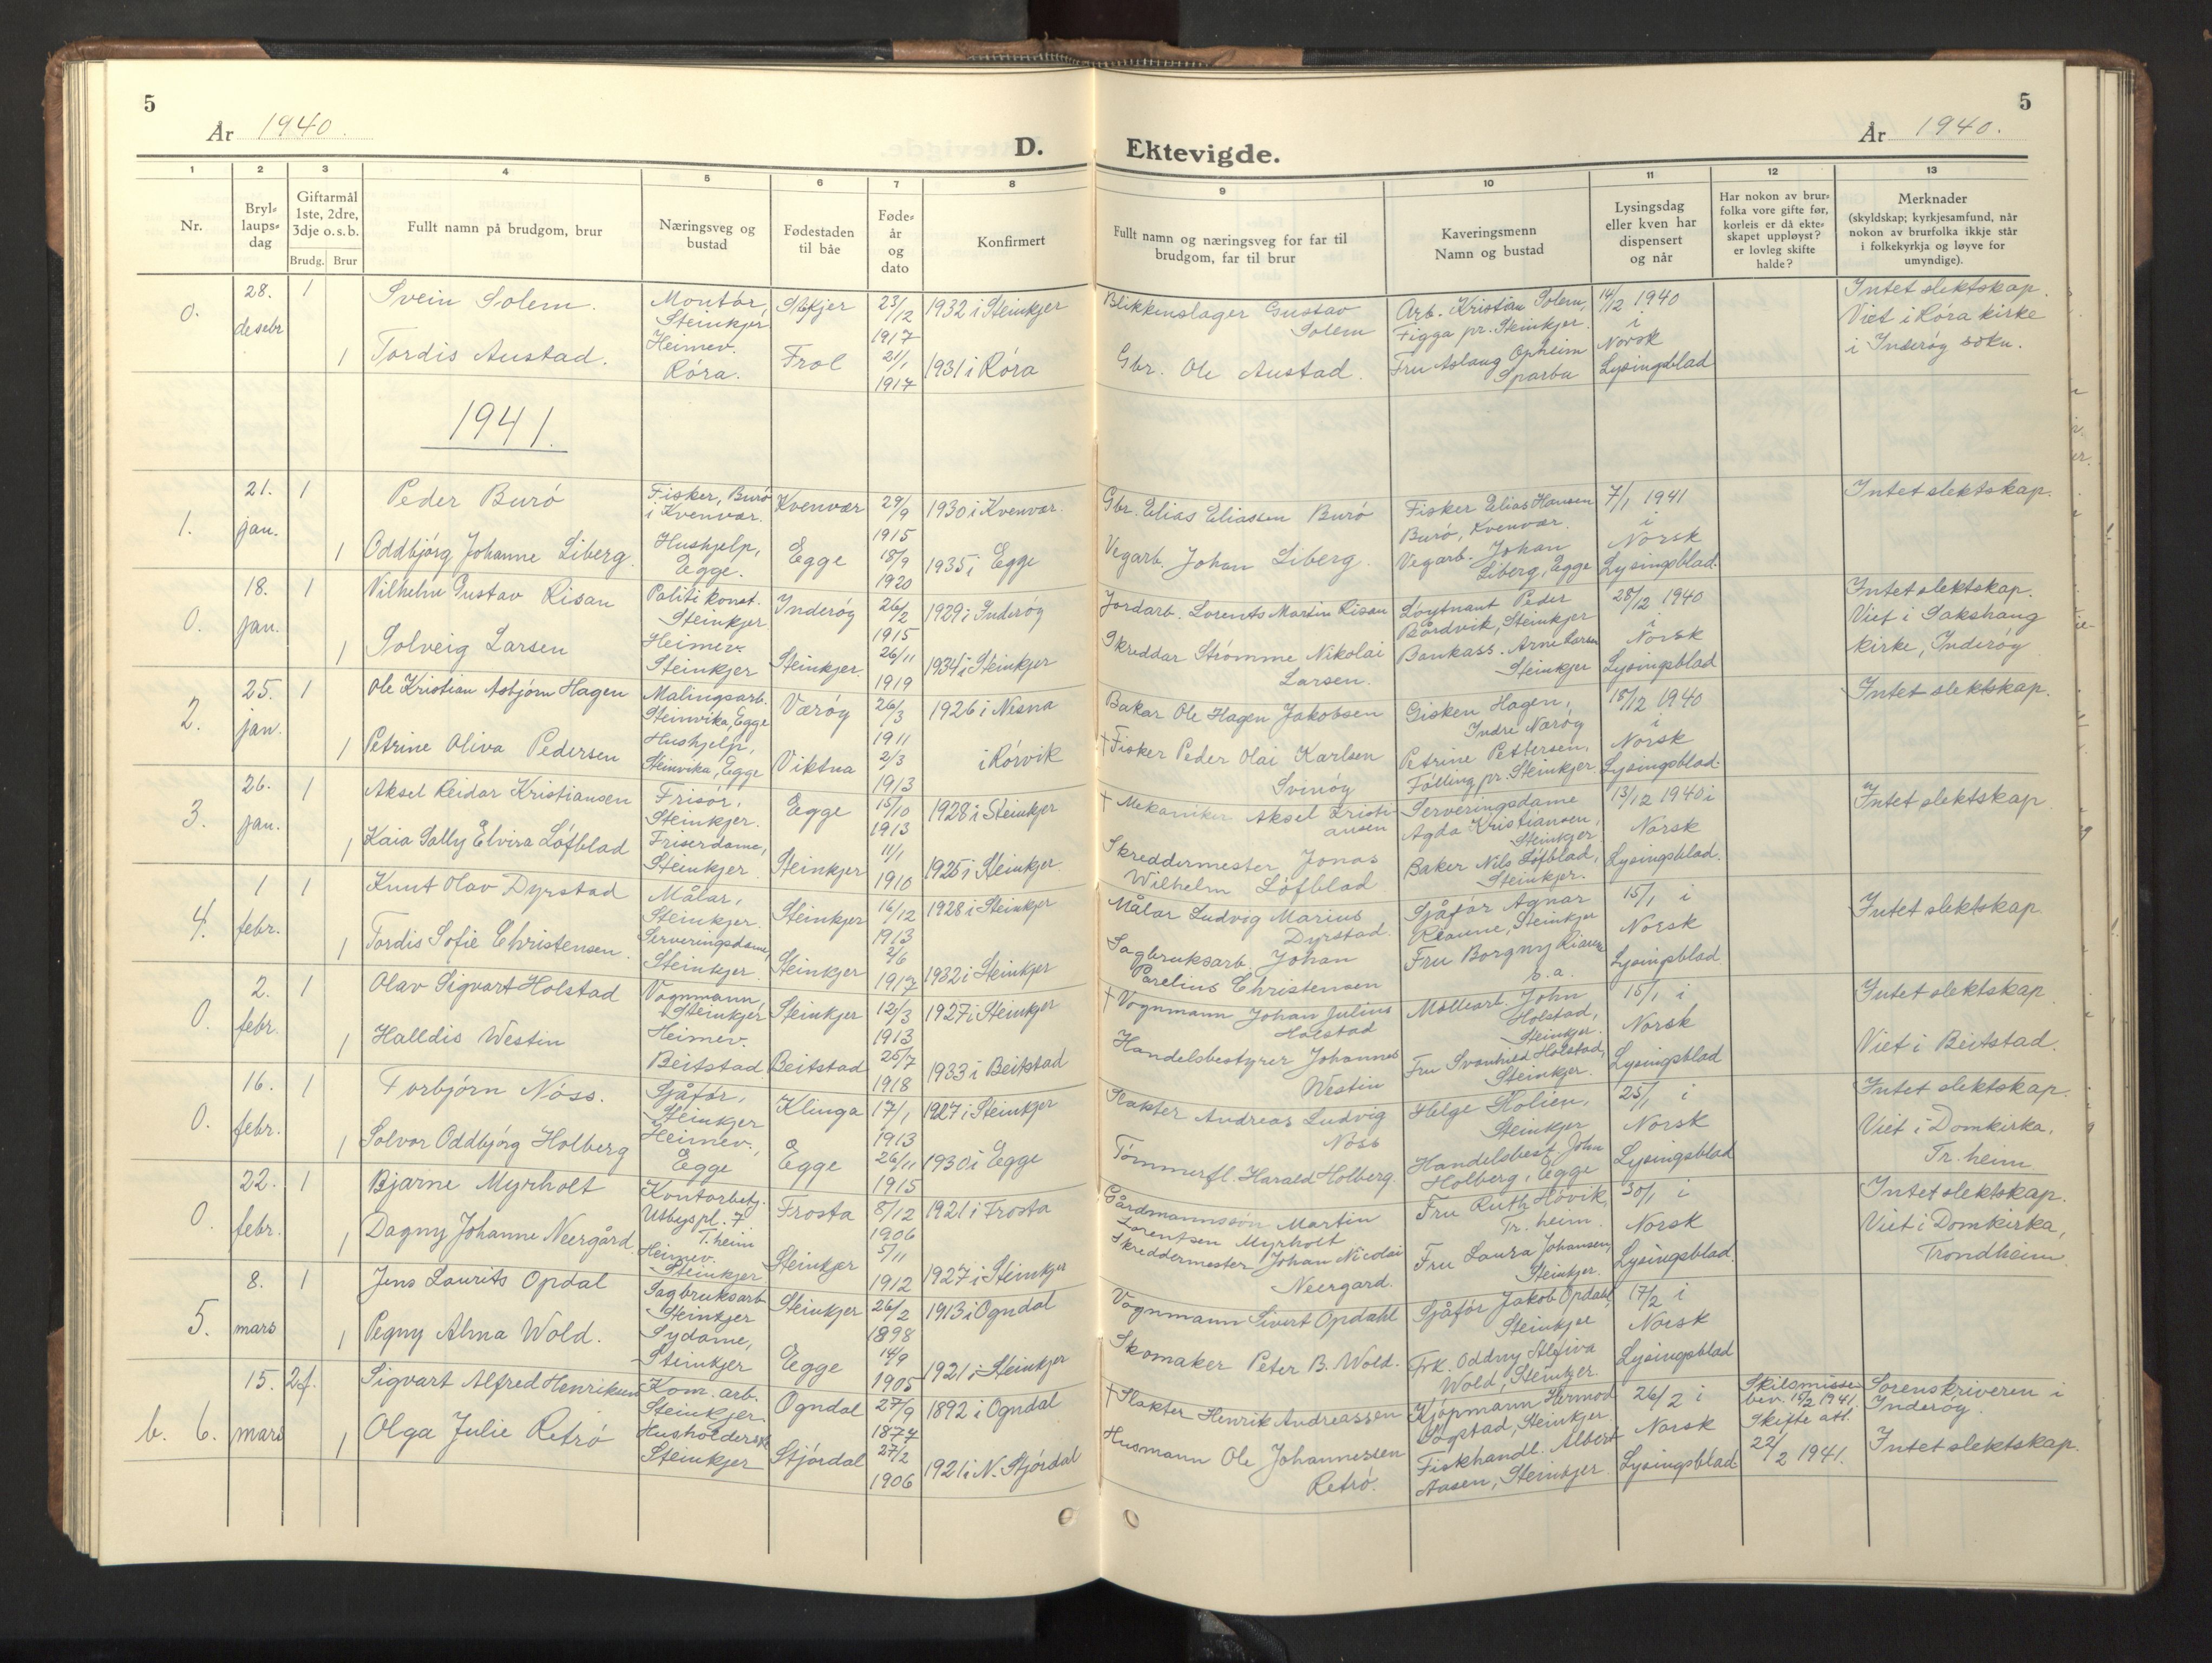 5
År 1940.
D.
1 2 3 4 5 6 7 8
Nr.
Bryl-
laups-
dag
Giftarmål
1ste, 2dre,
3dje o.s.b.
Brudg. Brur
Fullt namn på brudgom, brur
Næringsveg og
bustad
Fødestaden
til båe
Føde-
år
og
dato
Konfirmert
0.
28.
desebr
1
Svein Solem.
Montør,
Steinkjer
Stkjer
23/12
1917
1932 i Steinkjer
1
Tordis Austad.
Heimev.
Róra.
Frol
21/1
1917
1931 i Róra
1941.
1.
21.
jan.
1
Peder Buró
Fisker, Buró
i Kvenvær.
Kvenvær
29/9
1915
1930 i Kvenvær.
1
Oddbjórg Johanne Liberg.
Hushjelp,
Egge.
Egge
18/9
1920
1935 i Egge
0.
18.
jan.
1
Vilhelm Gustav Risan
Politikonst.
Steinkjer
Inderóy
26/2
1915
1929 i Inderóy
1
Solveig Larsen
Heimev.
Steinkjer
Steinkjer.
26/11
1919
1934 i Steinkjer
2.
25.
jan.
1
Ole Kristian Asbjórn Hagen
Malingsarb.
Steinvika, Egge
Væróy
26/3
1911
1926 i Nesna
1
Petrine Oliva Pedersen
Hushjelp,
Steinvika, Egge
Viktna
2/3
1913
i Rórvik
3.
26.
jan.
1
Aksel Reidar Kristiansen
Frisór,
Steinkjer.
Egge
15/10
1913
1928 i Steinkjer
1
Kaia Sally Elvira Lófblad
Friserdame,
Steinkjer.
Steinkjer
11/1
1910
1925 i Steinkjer.
4.
1
febr.
1
Knut Olav Dyrstad
Målar,
Steinkjer.
Steinkjer
16/12
1913
1928 i Steinkjer
1
Tordis Sofie Christensen.
Serveringsdame,
Steinkjer.
Steinkjer
2/6
1917
1932 i Steinkjer
0.
2.
febr.
1
Olav Sigvart Holstad
Vognmann,
Steinkjer
Steinkjer
12/3
1913
1927 i Steinkjer
1
Halldis Westin
Heimev.
Beitstad.
Beitstad
25/7
1918
1933 i Beitstad
0.
16.
febr.
1
Torbjórn Nóss.
Sjåfór,
Steinkjer
Klinga
17/1
1913
1927 i Steinkjer
1
Solvor Oddbjórg Holberg
Heimev.,
Egge
Egge
26/11
1915
1930 i Egge
0.
22.
febr.
1
Bjarne Myrholt
Kontorbetj.
Utbygspl. 7
T.heim
Frosta
8/12
1906
1921 i Frosta
1
Dagny Johanne Neergård.
Heimev.
Steinkjer
Steinkjer
5/11
1912
1927 i Steinkjer
5.
8.
mars
1
Jens Laurits Opdal
Sagbruksarb
Steinkjer
Steinkjer
26/2
1898
1913 i Ogndal
1
Pegny Alma Wold.
Sydame,
Steinkjer
Egge
14/9
1905
1921 i Steinkjer
b. 6.
15.
mars
2 f.
Sigvart Alfred Henriksen
Kom. arb.
Steinkjer.
Ogndal
27/9
1877
1892 i Ogndal
1
Olga Julie Retró
Husholderske
Steinkjer
Stjórdal
27/2
1906
1921 i N. Stjórdal
5
Ektevigde.
År 1940.
9 10 11 12 13
Fullt namn og næringsveg for far til
brudgom, far til brur
Kaveringsmenn
Namn og bustad
Lysingsdag
eller kven har
dispensert
og når
Har nokon av brur-
folka vore gifte før,
korleis er då ekte-
skapet uppløyst?
er lovleg skifte
halde?
Merknader
(skyldskap; kyrkjesamfund, når
nokon av brurfolka ikkje står
i folkekyrkja og løyve for
umyndige).
Blikkenslager Gustav
Solem
Arb. Kristian Solem,
Figga pr. Steinkjer.
14/12 1940
i
Norsk
Lysingsblad
Intet slektskap.
Viet i Róra kirke
i Inderóy sokn.
Gbr. Ole Austad.
Fru Aslaug Opheim
Sparbu
Gbr. Elias Eliassen Buró
Fisker Elias Hansen
Buró, Kvenvær.
7/1 1941
i
Norsk
Lysingsblad.
Intet slektskap.
Vegarb. Johan Liberg.
Vegarb. Johan
Liberg, Egge
Jordarb. Lorents Martin Risan
Lóytnant Peder
Bårdvik, Steinkjer
28/12 1940
i
Norsk
Lysingsblad
Intet slektskap.
Viet i Sakshaug
kirke, Inderóy
Skreddar Strómme Nikolai
Larsen.
Bankass. Arne Larsen
Steinkjer
Bakar Ole Hagen Jakobsen
Gisken Hagen,
Indre Næróy
18/12 1940
i
Norsk
Lysingsblad.
Intet slektskap.
†Fisker Peder Olai Karlsen
Svinóy
Petrine Pettersen,
Fólling pr. Steinkjer.
† Mekaniker Aksel Kristi-
ansen
Serveringsdame
Agda Kristiansen,
Steinkjer
13/12 1940 i
Norsk
Lysingsblad.
Intet slektskap
Skreddermester Jonas
Wilhelm Lófblad
Baker Nils Lófblad,
Steinkjer.
Målar Ludvig Marius
Dyrstad.
Sjåfór Agnar
Steinkjer
15/1 i
Norsk
Lysingsblad.
Intet slektskap
Sagbruksarb. Johan
Parelius Christensen
Fru Borgny Risan
s.a.
† Vognmann Johan Julius
Holstad
Mólleart. John
Holstad,
Steinkjer.
15/1 i
Norsk
Lysingsblad
Intet slektskap
Viet i Beitstad.
Handelsbestyrer Johannes
Westin
Fru Svanhild Holstad,
Steinkjer.
Slakter Andreas Ludvig
Nóss
Helge Holien,
Steinkjer
25/1 i
Norsk
Lysingsblad
Intet slektskap.
Viet i Domkirka,
Tr.heim
Tómmerfl. Harald Holberg.
Handelsbest. John
Holberg, Egge
Gårdmannssón Martin
Lorentsen Myrholt
Fru Ruth Hóvik,
Tr.heim.
30/1 i
Norsk
Lysingsblad
Intet slektskap.
Viet i Domkirka,
Trondheim
Skreddermester Johan Nicolai
Neergard.
Fru Laura Johansen,
Steinkjer.
Vognmann Sivert Opdahl
Sjåfór Jakob Opdahl,
Steinkjer
17/2 i
Norsk
Lysingsblad
Skomaker Peter B. Wold.
Frk. Oddny
Wold, Steinkjer.
† Slakter Henrik Andreassen
Kjópmann Hermod
Steinkjer.
26/2 i
Norsk
Lysingsblad
Skilsmisse
bev. 15/2 1941.
Skifte att.
22/2 1941.
Sorenskriveren i
Inderóy.
Intet slektskap.
Husmann Ole Johannessen
Retró.
Fiskhandl. Albert
Aasen, Steinkjer